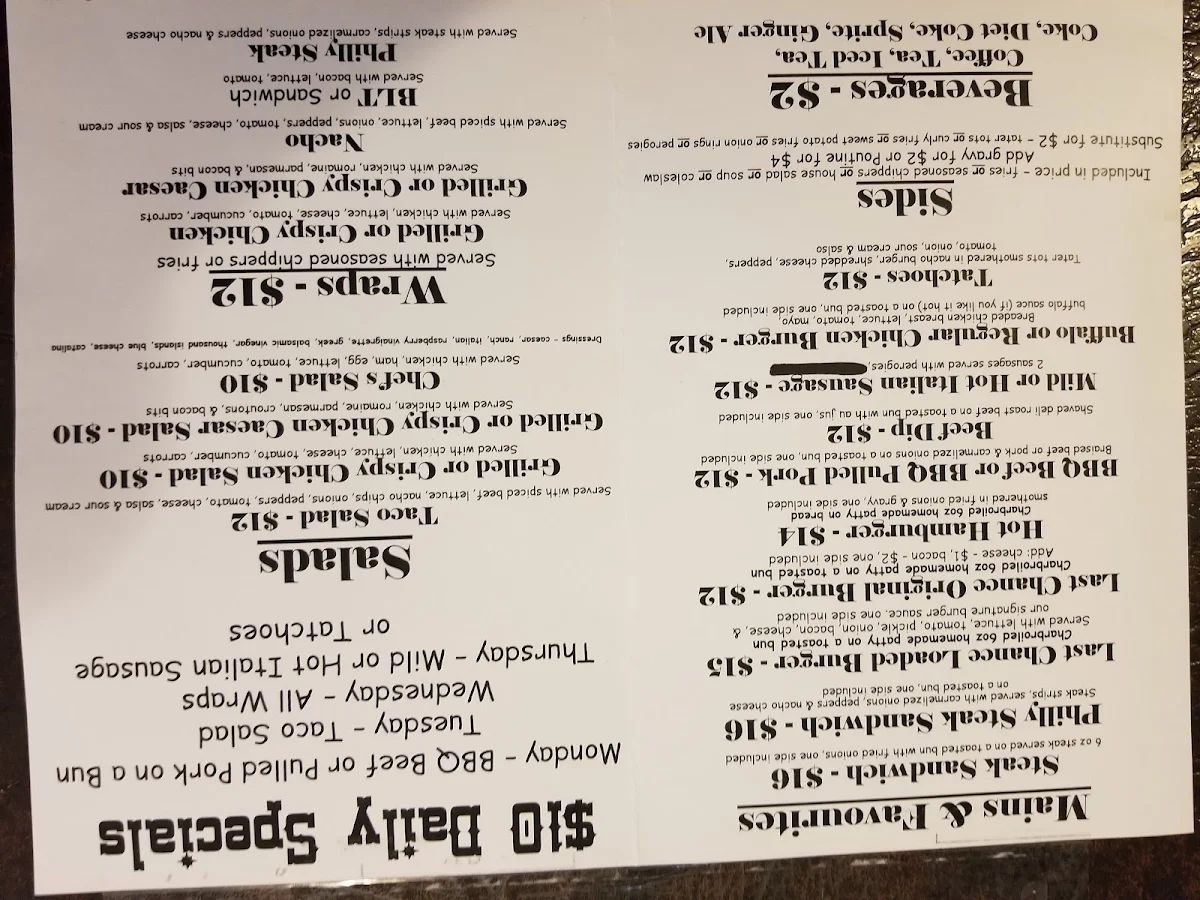 Mains & Favourites
Steak Sandwich - $16
6 oz steak served on a toasted bun with fried onions, one side included
Philly Steak Sandwich - $16
Steak strips, served with carmelized onions, peppers & nacho cheese
on a toasted bun, one side included
Last Chance Loaded Burger - $15
Charbroiled 6oz homemade patty on a toasted bun
Served with lettuce, tomato, pickle, onion, bacon, cheese, &
our signature burger sauce. one side included
Last Chance Original Burger - $12
Charbroiled 6oz homemade patty on a toasted bun
Add: cheese - $1, bacon - $2, one side included
Hot Hamburger - $14
Charbroiled 6oz homemade patty on bread
smothered in fried onions & gravy, one side included
BBQ Beef or BBQ Pulled Pork - $12
Braised beef or pork & carmelized onions on a toasted bun, one side included
Beef Dip - $12
Shaved deli roast beef on a toasted bun with au jus, one side included
Mild or Hot Italian Sausage - $12
2 sausages served with perogies,
Buffalo or Regular Chicken Burger - $12
Breaded chicken breast, lettuce, tomato, mayo,
buffalo sauce (if you like it hot) on a toasted bun, one side included
Tatchoes - $12
Tater tots smothered in nacho burger, shredded cheese, peppers,
tomato, onion, sour cream & salsa
Sides
Included in price - fries or seasoned chippers or house salad or soup or coleslaw
Add gravy for $2 or Poutine for $4
Substitute for $2 - tater tots or curly fries or sweet potato fries or onion rings or perogies
Beverages - $2
Coffee, Tea, Iced Tea,
Coke, Diet Coke, Sprite, Ginger Ale
$10 Daily Specials
Monday - BBQ Beef or Pulled Pork on a Bun
Tuesday - Taco Salad
Wednesday - All Wraps
Thursday - Mild or Hot Italian Sausage
or Tatchoes
Salads
Taco Salad - $12
Served with spiced beef, lettuce, nacho chips, onions, peppers, tomato, cheese, salsa & sour cream
Grilled or Crispy Chicken Salad - $10
Served with chicken, lettuce, cheese, tomato, cucumber, carrots
Grilled or Crispy Chicken Caesar Salad - $10
Served with chicken, romaine, parmesan, croutons, & bacon bits
Chef's Salad - $10
Served with chicken, ham, egg, lettuce, tomato, cucumber, carrots
Dressings - caesar, ranch, italian, raspberry vinaigrette, greek, balsamic vinegar, thousand islands, blue cheese, catalina
Wraps - $12
Served with seasoned chippers or fries
Grilled or Crispy Chicken
Served with chicken, lettuce, cheese, tomato, cucumber, carrots
Grilled or Crispy Chicken Caesar
Served with chicken, romaine, parmesan, & bacon bits
Nacho
Served with spiced beef, lettuce, onions, peppers, tomato, cheese, salsa & sour cream
BLT or Sandwich
Served with bacon, lettuce, tomato
Philly Steak
Served with steak strips, carmelized onions, peppers & nacho cheese